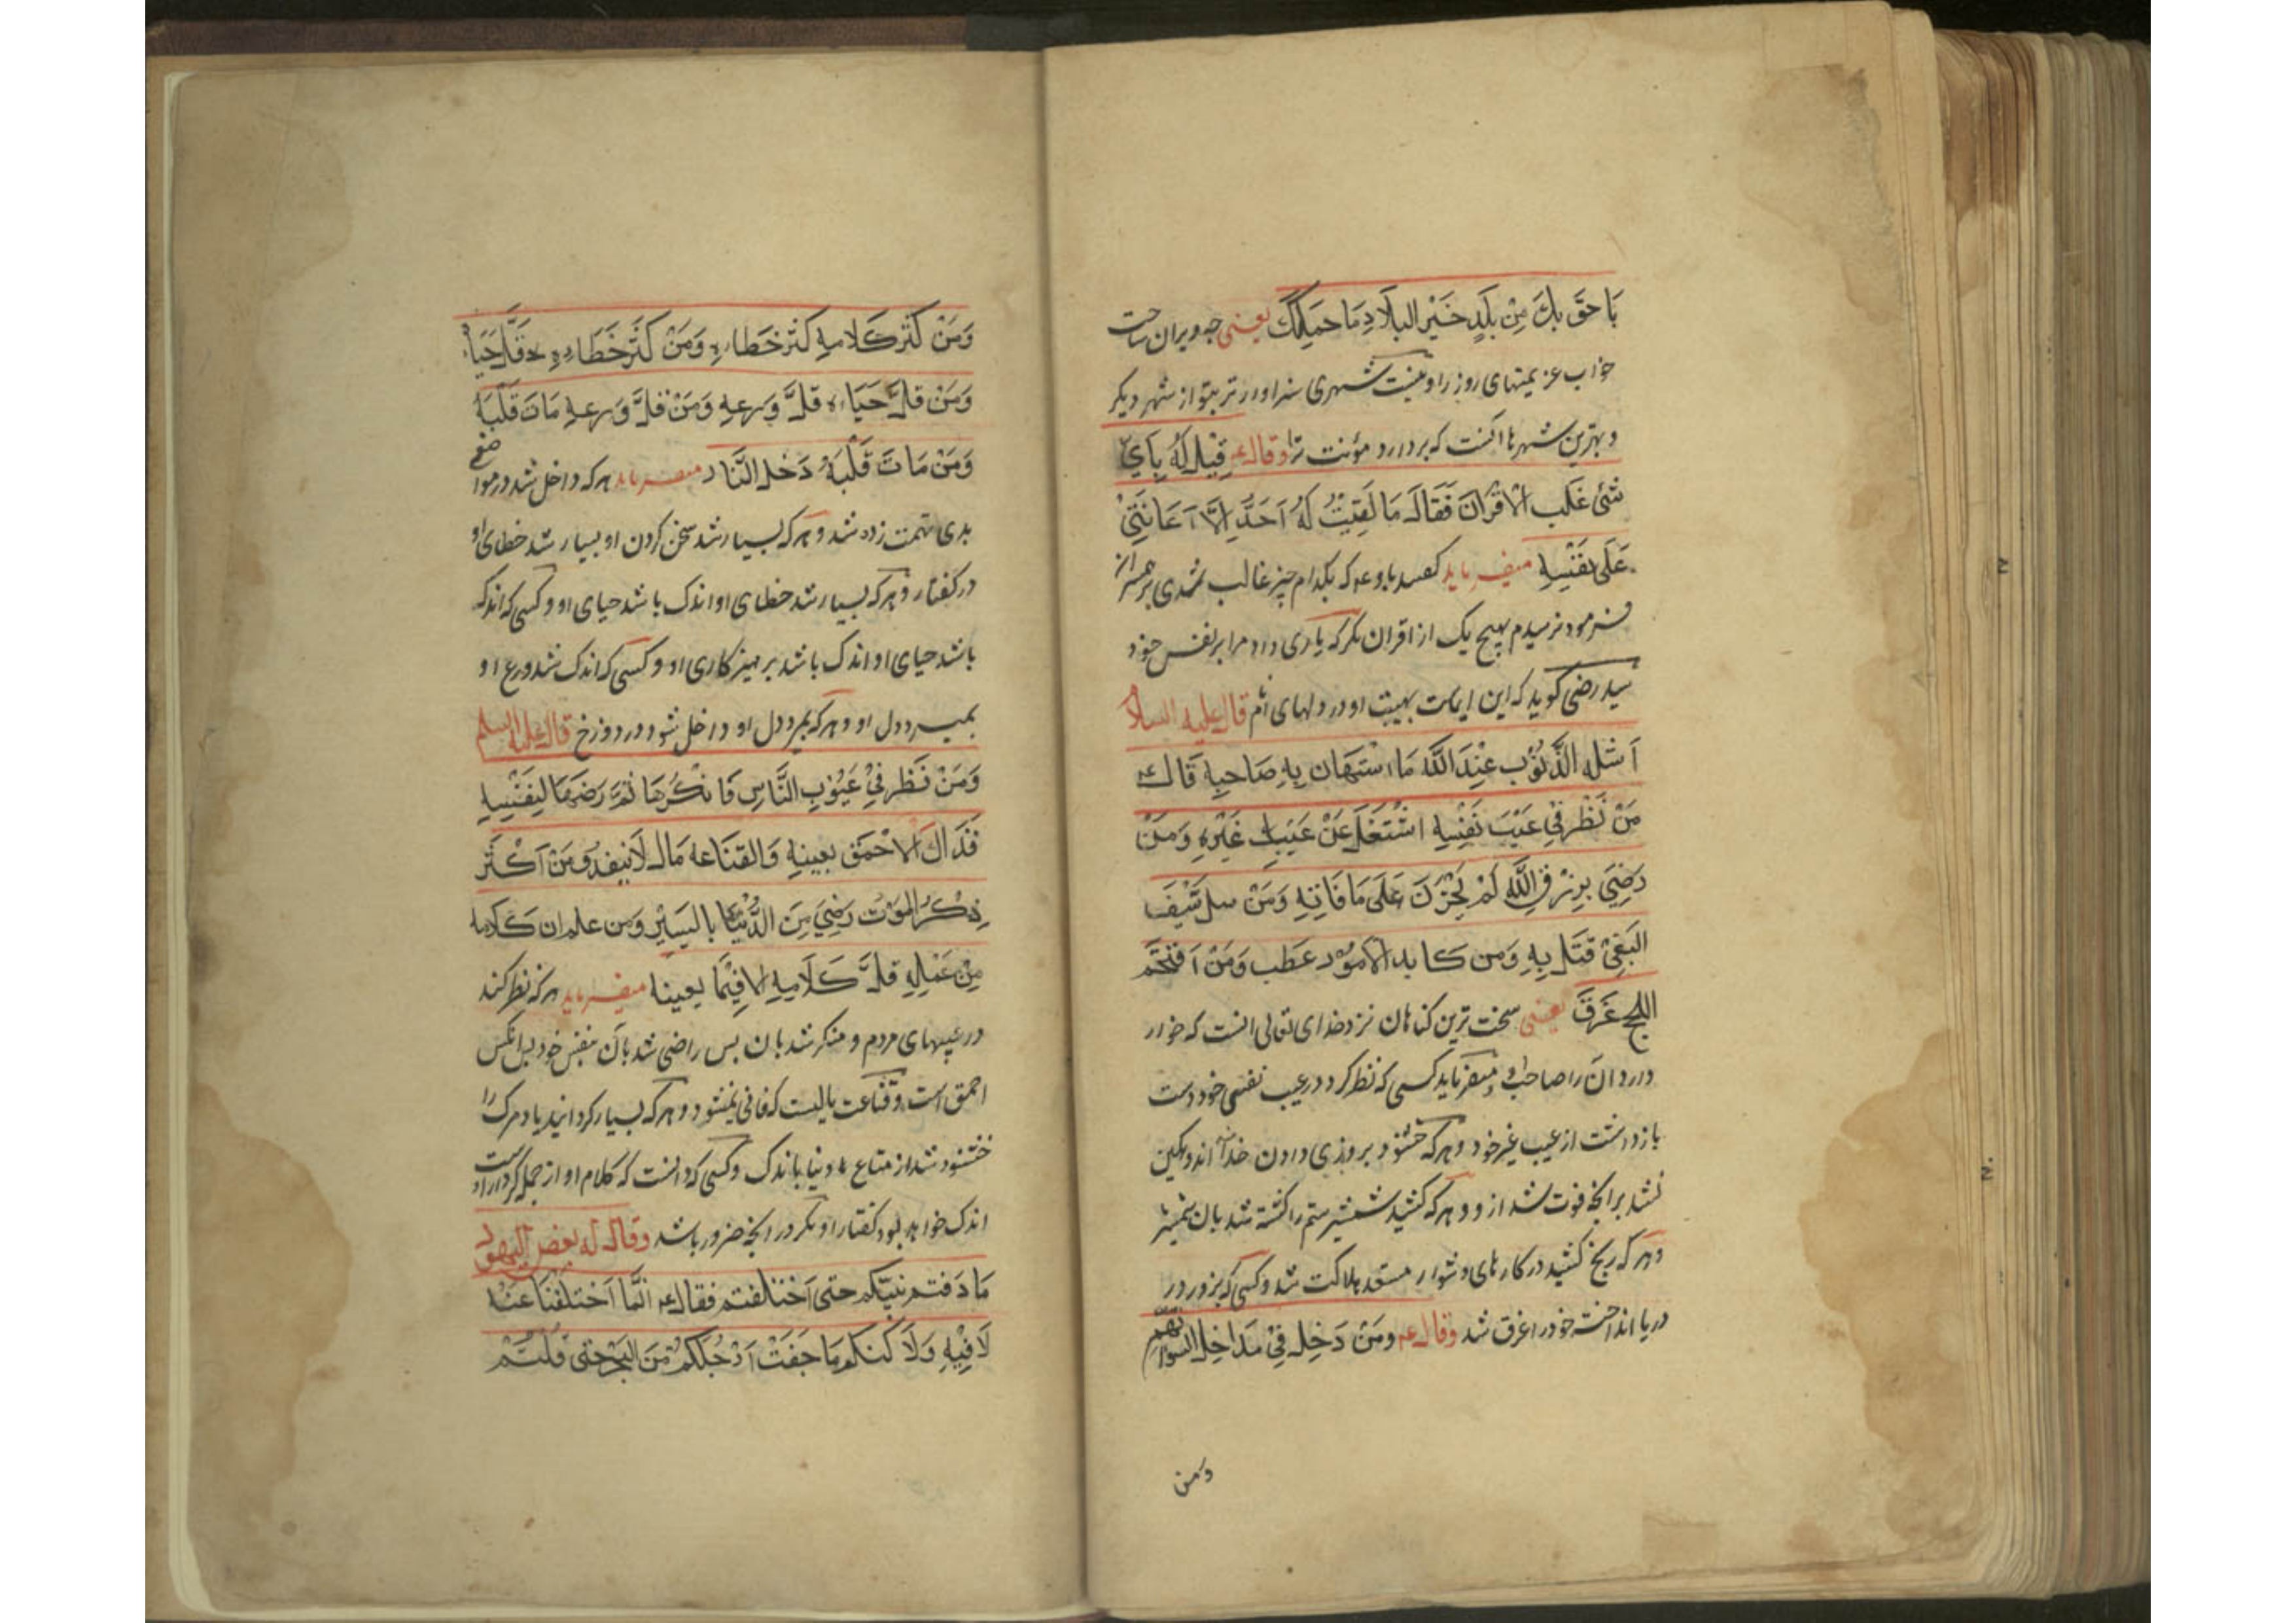 بَاحَقَ بِكَ مِنْ بَلَدٍ خَيْرُ البِلَادِ مَا حَمَلَكَ یعنی چه ویران ساخت
خواب عزیمتهای روز را و نیست شهری سزاوارتر بتو از شهر دیکر
و بهترین شهرها انست که بردارد مؤنت ترا وقالء قِيْلَ لَهُ بِاَيِّ
شَئ غَلَبَ الْاَقْرَانَ فَقَالَ مَا لَقِيْتُ لَهُ اَحَدٌ اِلَّا اَعَانَنِيْ
عَلَى نَفْسِهِ میفرماید کفتند باوء که بکدام چیز غالب شدی بر همسران
فرمود نرسیدم بهیچ یک از اقران مکر که یاری داد مرا بر نفس خود
سید رضی کوید که این ایماست بهیبت او در دلهای قال علیه السلام
اَشَدُّ الذُّنُوبِ عِنْدَ اللَّهِ مَا اسْتَهَانَ بِهِ صَاحِبِهِ قَالَء
مَنْ نَظَرَ فِي عَيْبَ نَفْسِهِ اشْتَغَلَ عَنْ عَيْبِ غَيْرِهِ وَمَنْ
رَضِيَ بِرِزْقِ اللَّهِ لَمْ يَحْزَنَ عَلَى مَا فَاتِهِ وَمَنْ سل سَيْفَ
البَغْيِ قَتَلَ بِهِ وَمَن كَابد الاُمُوْر عَطَب وَمَنْ اَقْتَحَمَ
اللجج غَرَقَ یعنی سخت ترین کناهان نزد خدای تعالی انست که خوار
دارد ان را صاحب او و میفرماید کسی که نظر کرد در عیب نفس خود دست
باز داشت از عیب غیر خود و هر که خشنود بروزی دادن خدا اندوهکین
نشد بر انچه فوت شد از و و هر که کشید شمشیر ستم را کشته شد بان شمشیر
و هر که رنج کشید در کارهای دشوار مستعد هلاکت شد و کسی که بزور در
دریا انداخت خود را غرق شد وقالء وَمَنْ دَخِلَ فِيْ مَدَاخِلَ السوء اتهم
ومن
وَمَنْ كَثُرَ كَلَامِهِ كَثُرَ خَطَاءِهِ وَمَنْ كَثُرَ خَطَاءِهِ قَلَّ حَيَاءُ
وَمَنْ قَلَّ حَيَاءه قَلَّ وَرعِهِ وَمَنْ قَلَّ وَرعِهِ مَاتَ قَلْبَهُ
وَمَنْ مَاتَ قَلْبَهُ دَخَلَ النَّار میفرماید هر که داخل شد در مواضع
بدی تهمت زده شد و هر که بسیار شد سخن کردن او بسیار شد خطای او
در کفتار و هر که بسیار شد خطای او اندک باشد حیای او و کسی که اندک
باشد حیای او اندک باشد پرهیزکاری او و کسی که اندک شد ورع او
بمیرد دل او و هر که بمیرد دل او داخل شود در دوزخ قال علیه السلم
وَمَنْ نَظَرَ فِيْ عُيُوْبِ النَّاسِ فَانْكَرَهَا ثُمَّ رَضِهَا لِنَفْسِهِ
فَذَاكَ الاَحْمَق بعينِهِ وَالقَنَاعه مَال لَا يَنفدُ وَمَنْ اَكْثَر
ذِكْرَ المَوْت رَضِيَ مِنَ الدُّنْيَا بِاليَسِيْرِ وَمَن علم ان كَلَامه
مِنْ عَمَلِهِ قَلَّ كَلَامِهِ الا فِيْمَا يعينه میفرماید هر که نظر کند
در عیبهای مردم و منکر شد بان پس راضی شد بان بنفس خود پس انکس
احمق است و قناعت مالیست که فانی نمیشود و هر که بسیار کرداند یاد مرک را
خشنود شد از متاع دنیا باندک و کسی که دانست که کلام او از جمله کردار اوست
اندک خواهد بود کفتار او مکر در انچه ضرور باشد وقال له بعض الیهود
مَا دَفنتم نَبِيّكم حتى اَخْتَلفتم فقالء انَّمَا اَخْتَلَفْنَا عَنْهُ
لَا فِيْهِ وَلَا كنكم مَا جَفَتْ اَرْجُلكُمْ مِنَ البَحْرِ حَتى قُلْتُمْ